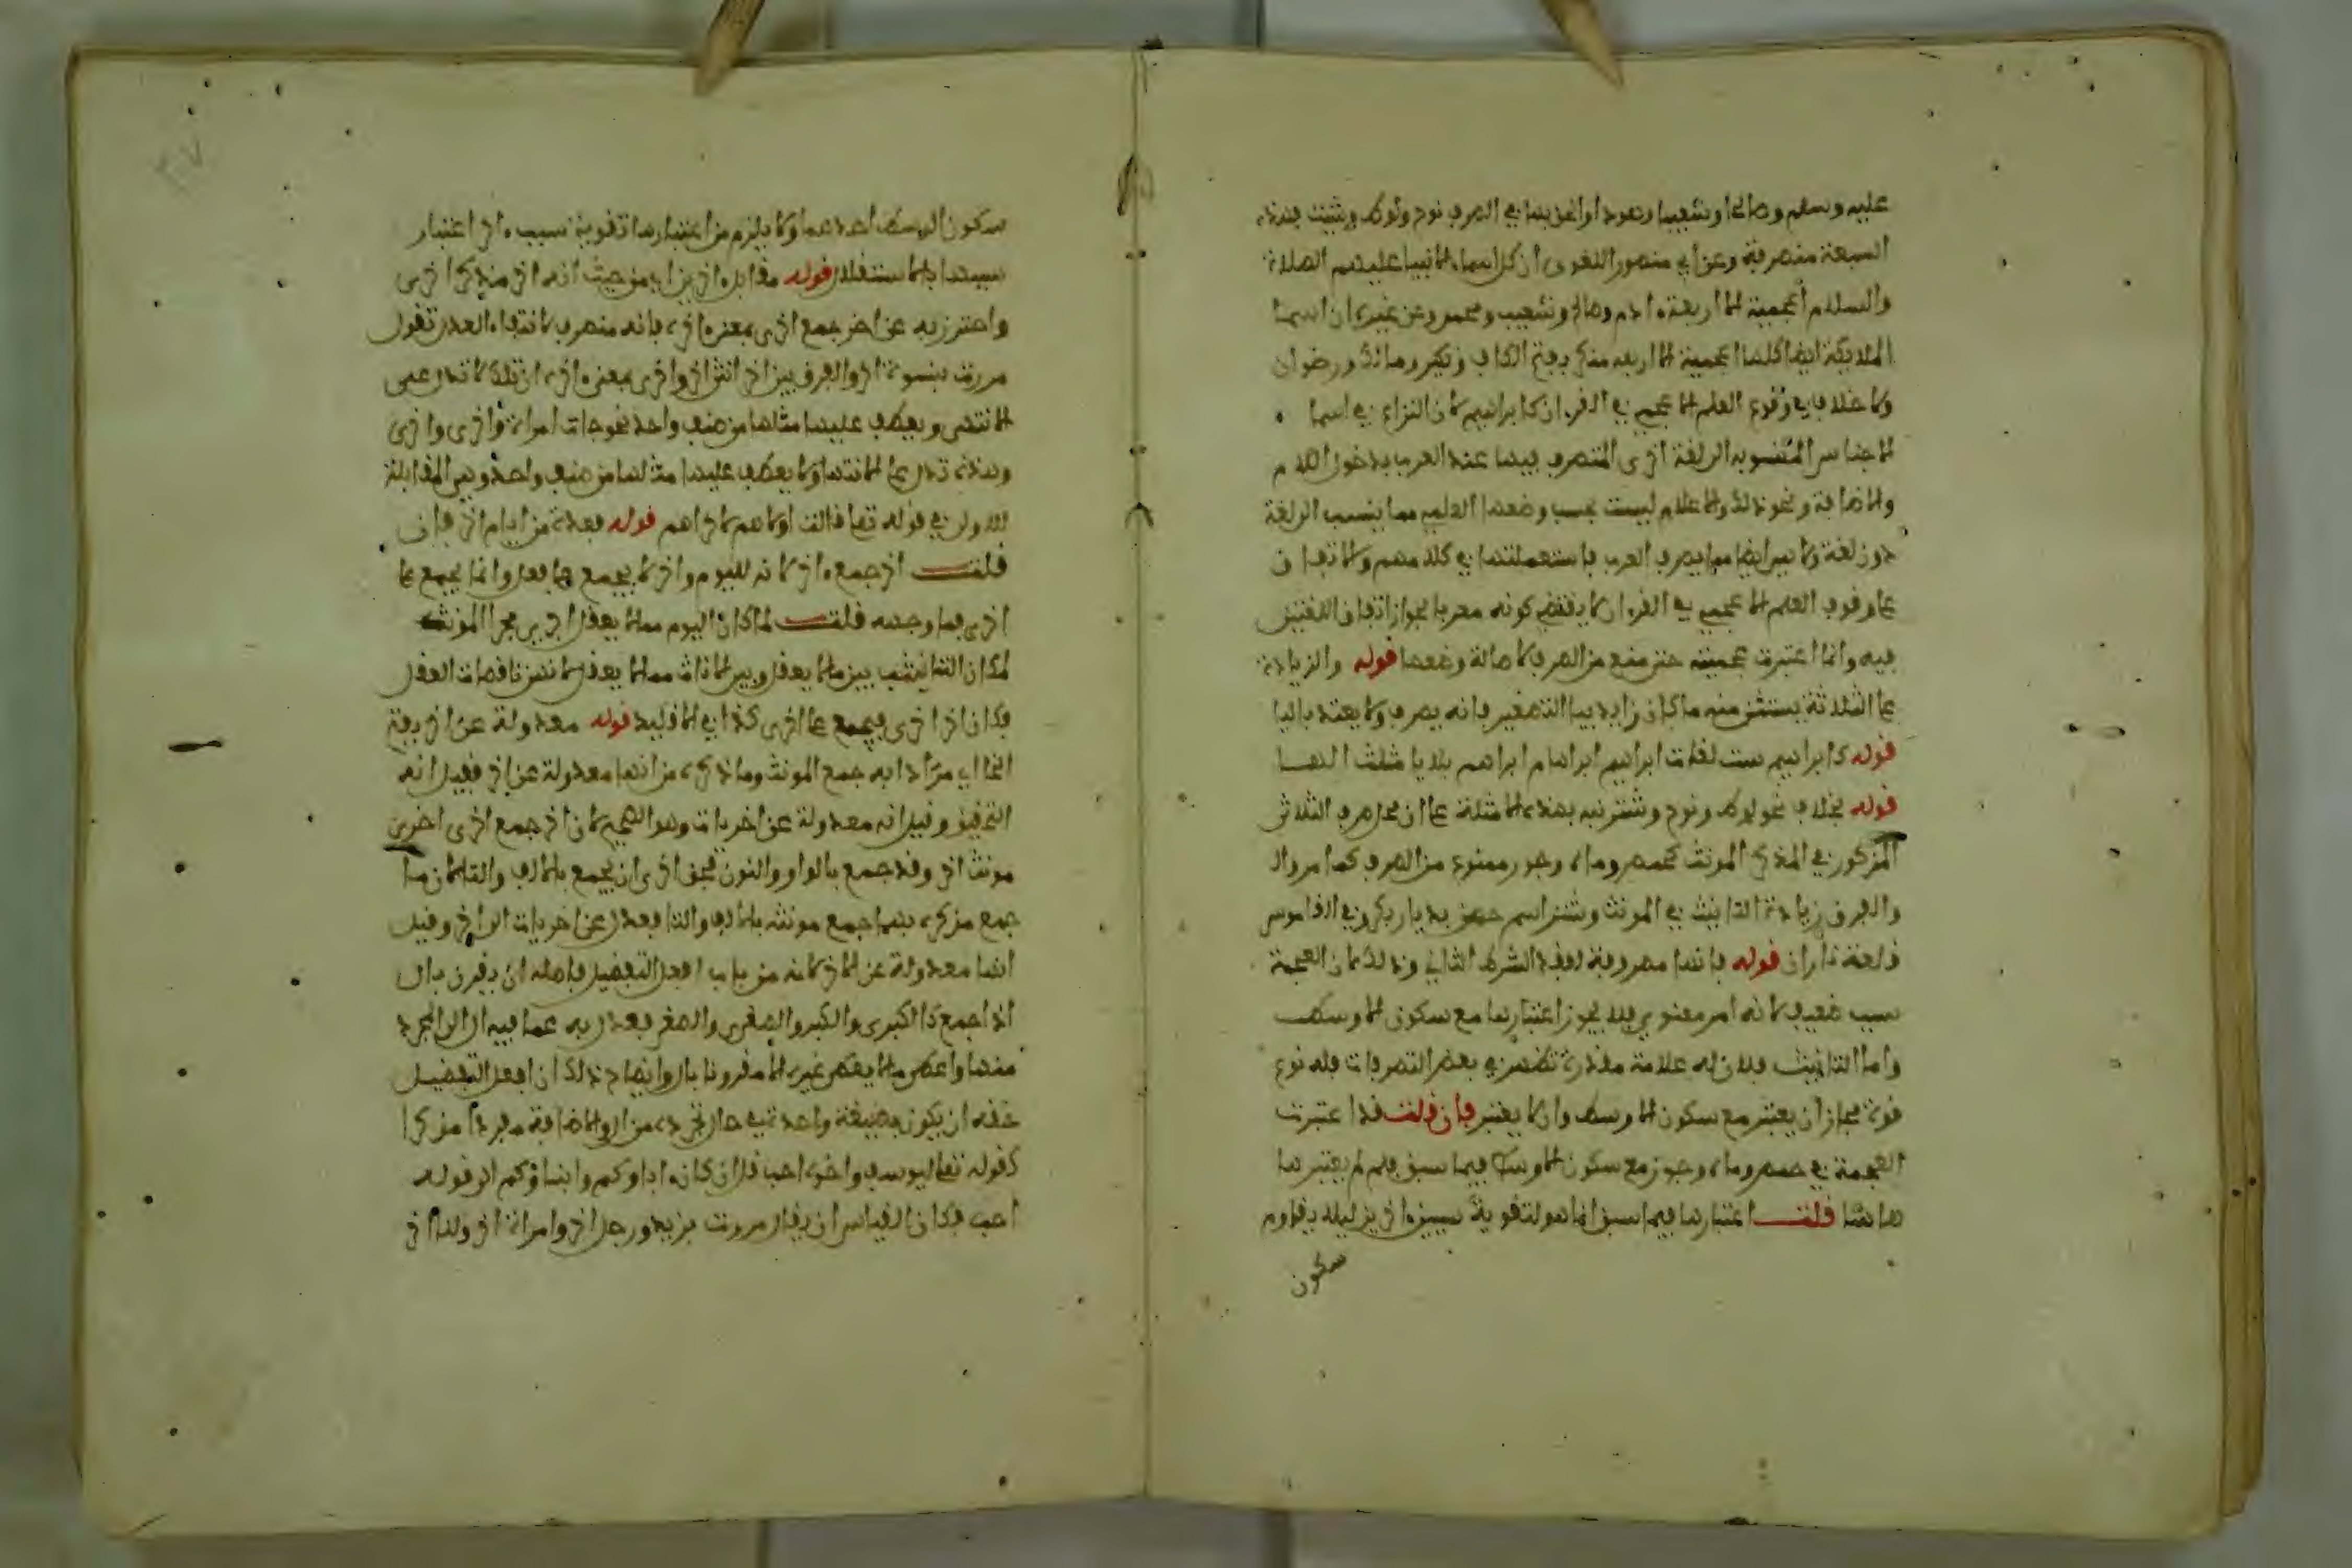 عليه وسلم وصالحا وشعيبا وهودا وازيد بها في الصرف نوح ولوط وشيث فهذه
السبعة منصرفة وعن ابي منصور اللغوي ان كل اسماء الانبيا عليهم الصلاة
والسلام أعجمية الا اربعة ءادم وصالح وشعيب ومحمد وعن غيره ان اسما
الملايكة ايضا كلها اعجمية الا اربعه منكر بفتح الكاف ونكير ومالك ورضوان
ولا خلاف في وقوع العلم الاعجمي في القرءان كابراهيم لان النزاع في اسما
الاجناس المنسوبه الى لغة اخرى المتصرف فيها عند العرب بدخول اللام
والاضافة ونحو ذلك والاعلام ليست بحسب وضعها العلمي مما ينسب الى لغة
دون لغة ولا هي ايضا مما يصرف العرب فاستعملتها في كلامهم والاتفاق
على وقوع العلم الاعجمي في القرءان لا يقتضي كونه معربا لجواز اتفاق اللغتين
فيه وانما اعتبرت عجميته حتى منع من الصرف لاصالة وضعها قوله والزيادة
على الثلاثة يستثنى منه ما كان زايد بيا التصغير فانه يصرف ولا يعتد باليا
قوله كابراهيم ست لغات ابراهيم ابراهام ابراهم بلا يا مثلث الهـا
قوله بخلاف نحو لوط ونوح وشتر نبه بهذه الامثلة على ان محل صرف الثلاثي
المذكور في المذكر المونث كحمص وماه وجور ممنوع من الصرف كما مر وال
والفرق زيادة التانيث في المونث وشتر اسم حصن بديار بكر وفي القاموس
قلعة باران قوله فانها مصروفة لفقد الشرط الثاني وذلك لان العجمة
سبب ضعيف لانه امر معنوي فلا يجوز اعتبارها مع سكون الاوسط
واما التانيث فلان له علامة مقدرة تظهر في بعض التصرفات فله نوع
قوة فجاز ان يعتبر مع سكون الاوسط وان لا يعتبر فان قلت قد اعتبرت
العجمة في حمص وماه وجور مع سكون الاوسط فيما سبق فلم لم يعتبرها
هاهنا قلت اعتبارها فيما سبق انما هو لتقوية سببين ءاخرين ليلا يقاوم
سكون
سكون الوسط احدهما ولا يلزم من اعتبارها تقوية سبب ءاخر اعتبار
سببها بالاستقلال قوله مقابل ءاخرين اي من حيث انه اخر مذكر اخرى
واحترز به عن اخر جمع اخرى بمعنى ءاخرة فانه منصرف لانتفاء العدل تقول
مررت بنسوة اخر والفرق بين اخر انثى اخر واخرى بمعنى ءاخرة ان تلك لا تدل على
الانتهى ويعطف عليها مثلها من صنف واحد نحو جات امراة واخرى واخرى
وهذه تدل على الانتها ولا يعطف عليها مثلها من صنف واحد وهي المقابلة
للاولى في قوله تعا قالت اولاهم لاخراهم قوله فعدة من ايام اخر فان
قلت اخر جمع ءاخر لانه لليوم واخر لا يجمع على فعل وانما يجمع على
اخرى فما وجهه قلت لما كان اليوم مما لا يعقل اجرى مجرا المونث
لمكان التانيث بين ما لا يعقل وبين الاناث مما لا يعقل لانهن ناقصات العقل
فكان اخر اخرى فيجمع على اخرى كذا في الاقليد قوله معدولة عن اخر بفتح
الخا اي مرادا به جمع المونث وما ذكره من انها معدولة عن اخر فقيل انه
التحقيق وقيل انه معدولة عن اخريات وهو الصحيح لان اخر جمع اخرى اخرى
مونث اخر وقد جمع بالواو والنون فحق اخرى ان يجمع بالالف والتا لان ما
جمع مذكره بهما جمع مونثه بالالف والتا فعدل عن اخريات الى اخر وقيل
انها معدولة عن الاخر لانه من باب افعل التفضيل فاصله ان يقرن بال
اذا جمع كالكبرى والكبر والصغرى والصغر فعدل به عما فيه ال الى المجرد
منها واعطى ما لا يعطى غيره الا مقرونا بال وايضاح ذلك ان افعل التفضيل
حقه ان يكون بصيغة واحدة في حال تجرده من ال والاضافة مفردا مذكرا
كقوله تعالى ليوسف واخوه احب قل ان كان ءاباؤكم وابناؤكم الى قوله
احب فكان القياس ان يقال مررت بزيد ورجل اخر وامراة اخر ولذا اخر